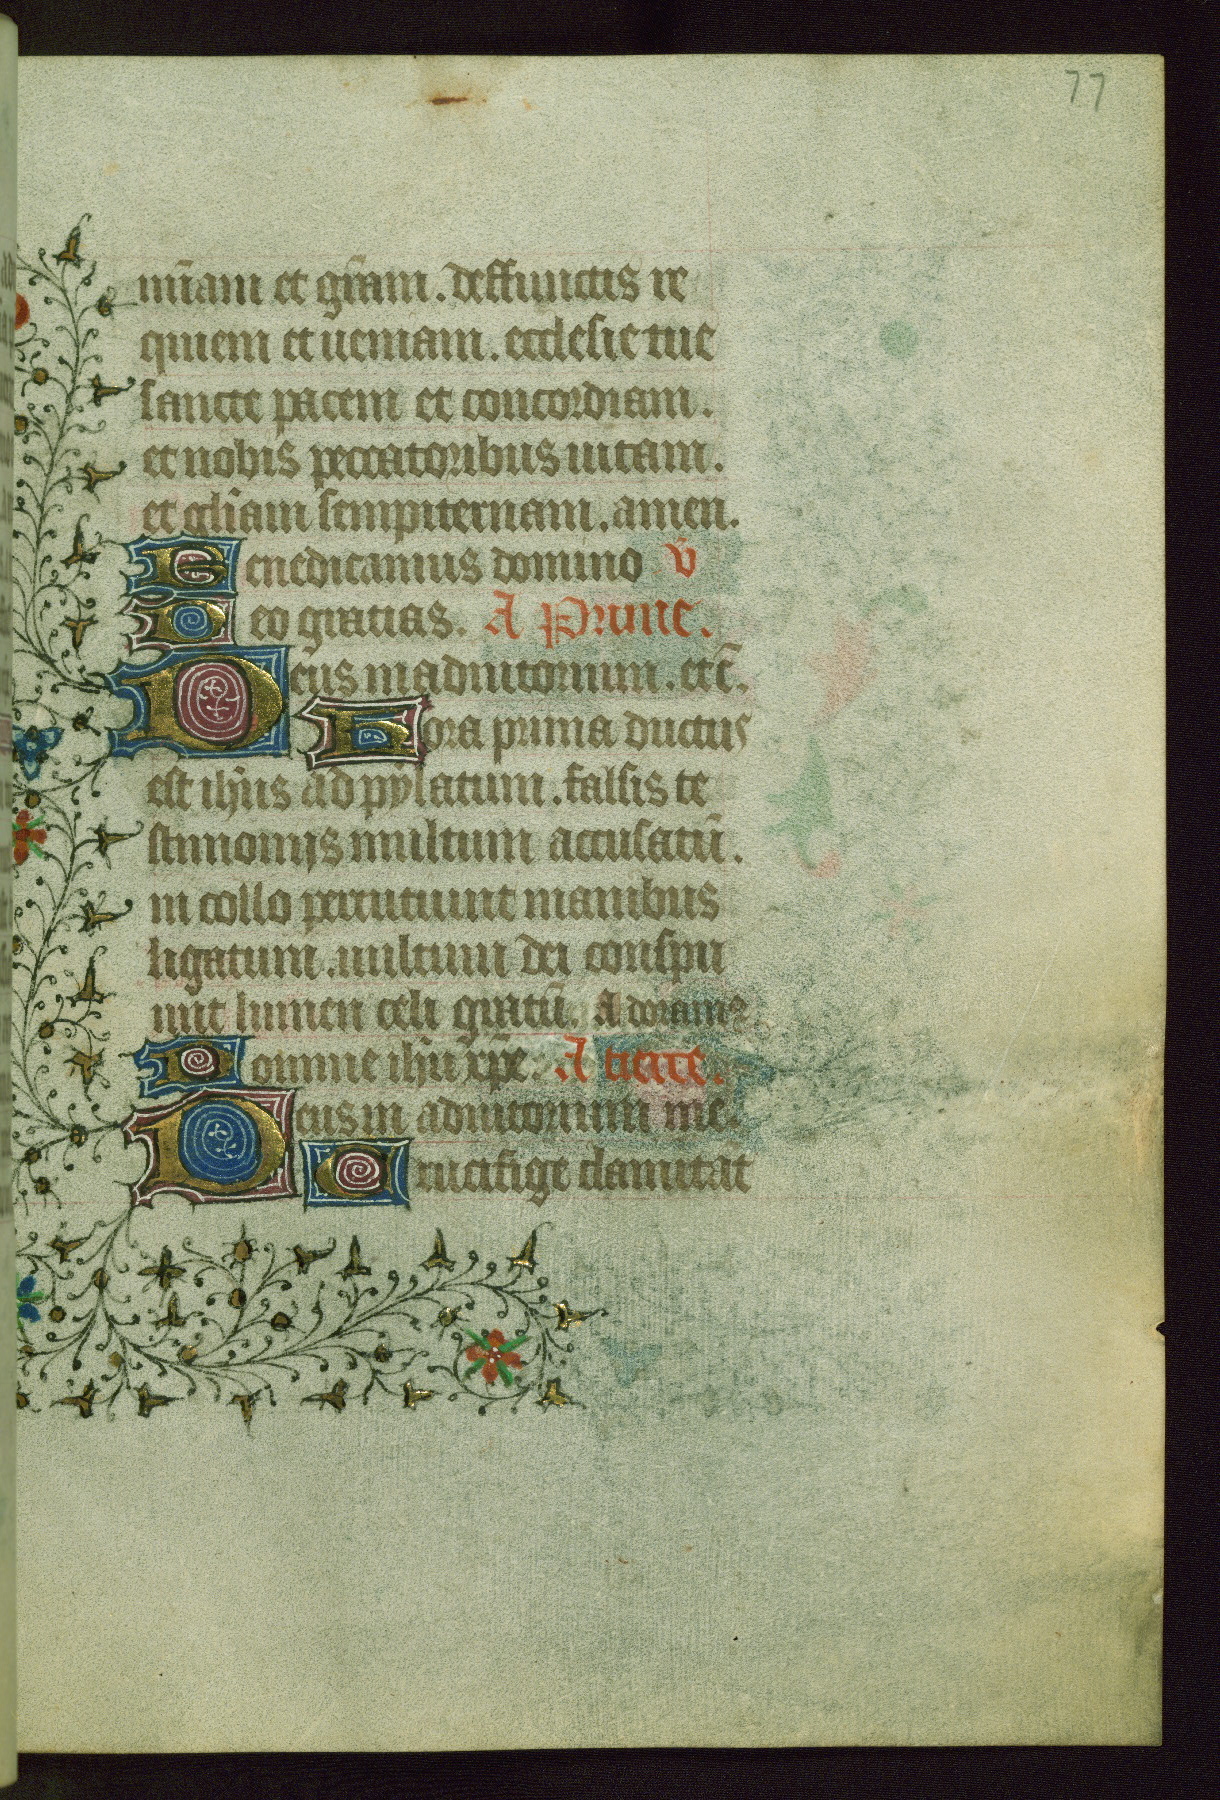 77
mīam et grām. deffunctis re
quiem et ueniam. ecclesie tue
sancte pacem et concordiam.
et nobis peccatoribus uitam.
et gliam sempiternam. amen.
Benedicamus domino v̄
Deo gratias. A Prime.
Deus in adiutorium. etc̄.
Hora prima ductus
est ihus ad pylatum. falsis te
stimonijs multum accusatū.
in collo percutiunt manibus
ligatum. uultum dei conspu
unt lumen celi grātū. Adoramꝰ
Domine ihu xp̄e. A tierce.
Deus in adiutorium me.
Crucifige clamitāt